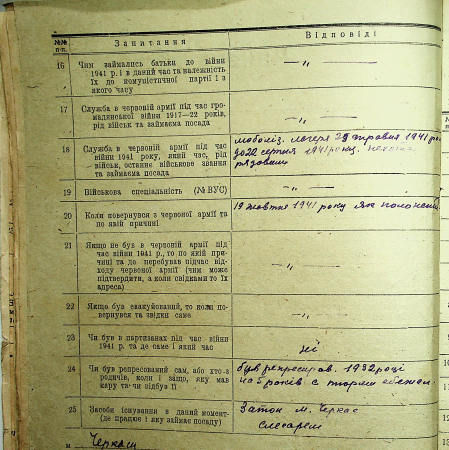 №№ п-п.
Запитання
Відповіді
16
Чим займались батьки до війни
1941 р. і в даний час та належність
їх до комуністичної партії і з
якого часу
— „ —
17
Служба в червоній армії під час гро-
мадянської війни 1917—22 років,
рід військ та займаєма посада
— „ —
18
Служба в червоній армії під час
війни 1941 року, який час, рід
військ, останнє військове звання
та займаєма посада
29 травня 1941
до 22 серпня 1941 року.
рядовим
19
Військова спеціальність (№ ВУС)
— „ —
20
Коли повернувся з червоної армії та
по якій причині
19 жовтня 1941 року як
21
Якщо не був в червоній армії під
час війни 1941 р., то по якій при-
чині та де перебував підчас від-
ходу червоної армії (чим може
підтвердити, а коли свідками то їх
адреса)
— „ —
22
Якщо був евакуйований, то коли по-
вернувся та звідки саме
— „ —
23
Чи був в партизанах під час війни
1941 р. та де саме і який час
ні
24
Чи був репресирован сам, або хто-з
родичів, коли і защо, яку мав
кару та чи відбув її
був репресиров. 1932 році
на 5 років с тюрми
25
Засоби існування в даний момент
(де працює і яку займає посаду)
Затон м. Черкас
слесарем
м
Черкаси